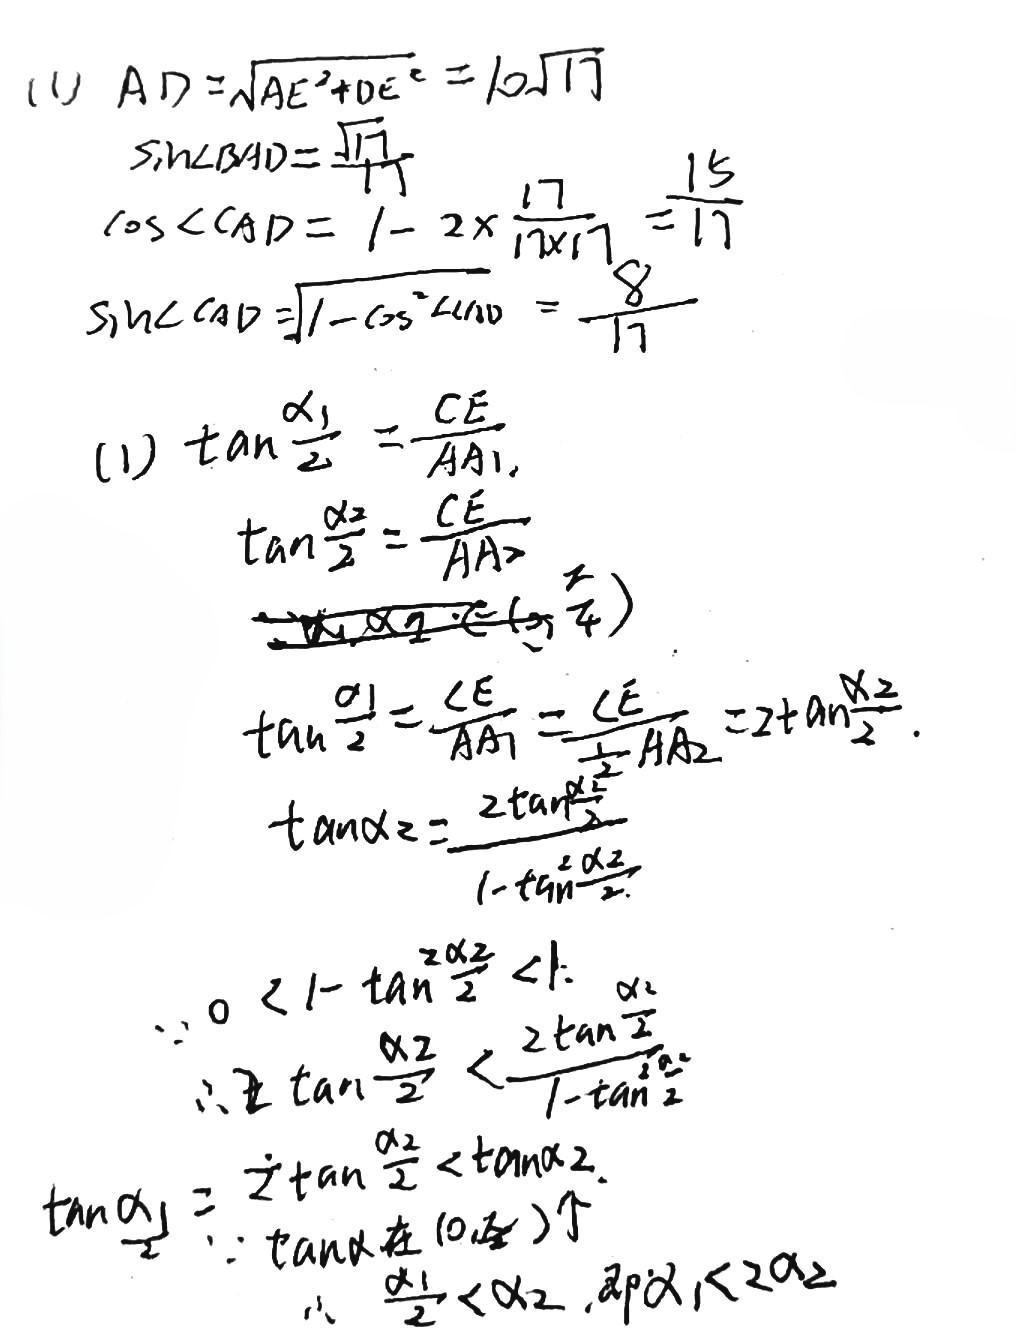 (1) AD = √(AE²+DE²) = 10√17
sin∠BAD = √17/17
cos∠CAD = 1 - 2× 17/(17×17) = 15/17
sin∠CAD = √(1-cos²∠CAD) = 8/17
(1) tan α₁/2 = CE/AA₁,
tan α₂/2 = CE/AA₂
tan α₁/2 = CE/AA₁ = CE/(½AA₂) = 2tan α₂/2 .
tanα₂ = 2tan(α₂/2) / (1-tan²(α₂/2))
∵ 0 < 1-tan² α₂/2 < 1.
∴ 2 tan α₂/2 < 2tan(α₂/2) / (1-tan²(α₂/2))
tan α₁/2 = 2tan α₂/2 < tanα₂.
∵ tanα在(0,π/2)↑
∴ α₁/2 < α₂ ,即α₁<2α₂